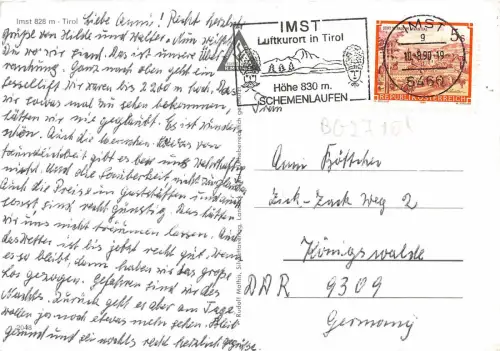 Imst 828 m - Tirol
Liebe Anni! Recht herzliche
Grüße von Hilde und Walter. Nun weißt
Du wo wir sind. Das ist unsere Über
raschung. Ganz nach oben ein
Sessellift wir waren bis 2200 m hoch. Das
wir sowas mal zu sehen bekommen,
hätten wir nie geglaubt. Es ist wunder
schön. Auch die Menschen. Sowas von
Freundlichkeit gibt es bei uns
nicht. Und die Sauberkeit nicht
Auch die Preise in Gaststätten und auch
sonst sind recht günstig. Das hätten
wir uns nicht träumen lassen. Auch
das Wetter ist bis jetzt recht gut. Wenn
es so bleibt, dann haben wir das große
Los gezogen. Gefahren sind wir des
Nachts. Zurück geht es aber am Tage.
wollen ja noch etwas mehr sehen. Bleib
gesund und sei nochmals recht herzlich gegrüßt.
IMST
Luftkurort in Tirol
Höhe 830 m.
SCHEMENLAUFEN
IMST
10.-8.90-19
6460
5s
REPUBLIK ÖSTERREICH
Anni Böttcher
Zick-Zack Weg 2
Königswalde
DDR 9309
Germany